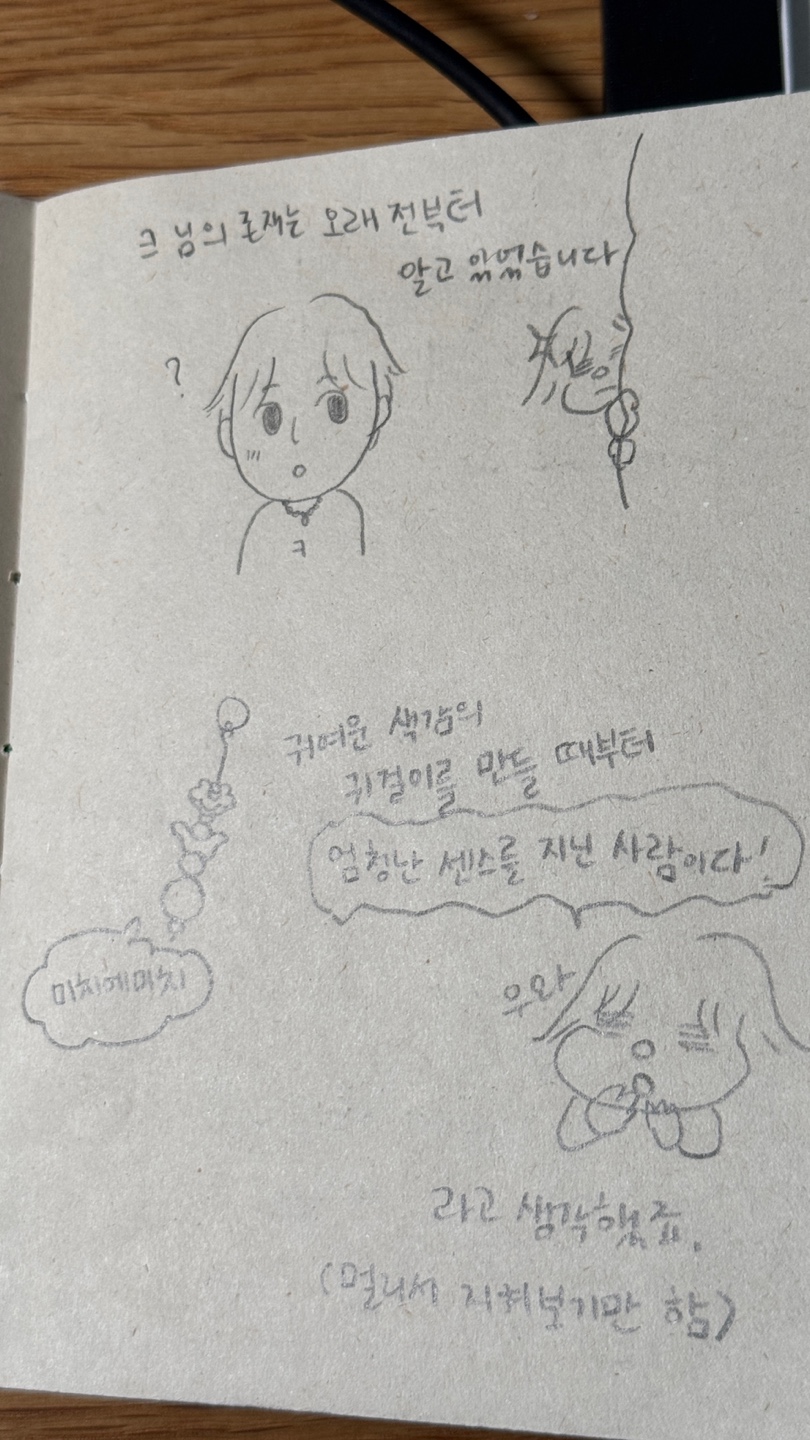 크 님의 존재는 오래 전부터
알고 있었습니다
?
ㅋ
귀여운 색감의
귀걸이를 만들 때부터
엄청난 센스를 지닌 사람이다!
미치에미치
우와
라고 생각했죠.
(멀리서 지켜보기만 함)